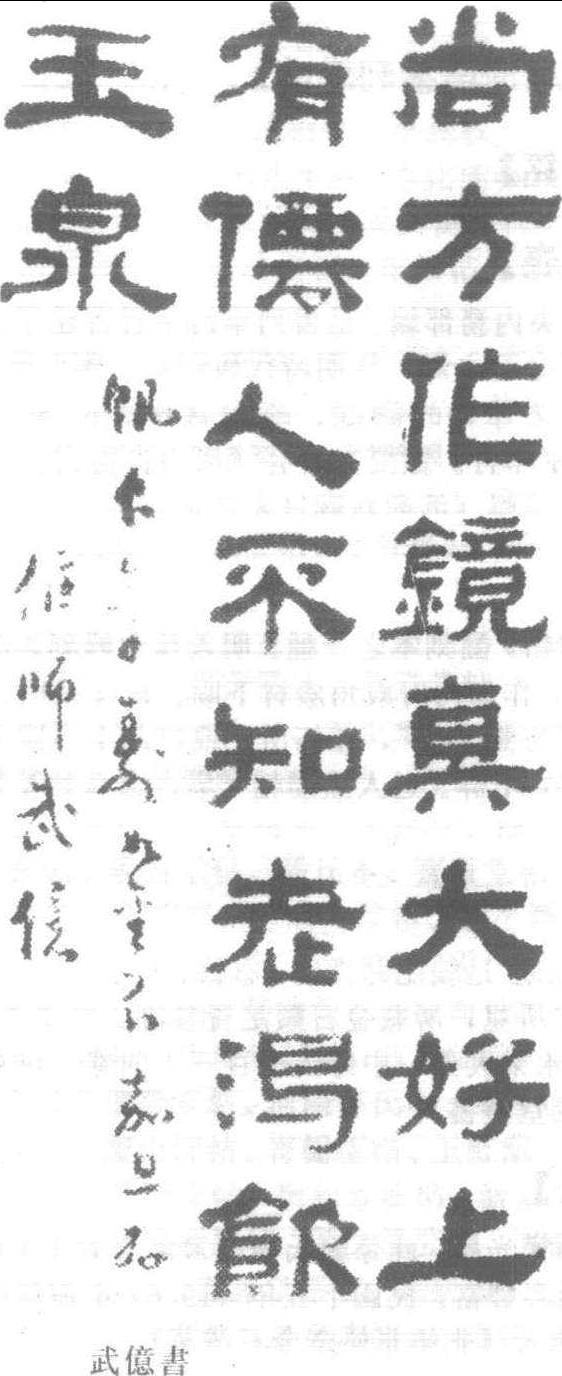 尚方作鏡真大好上
有僊人不知老渴飲
玉泉
偃師武億
武億書